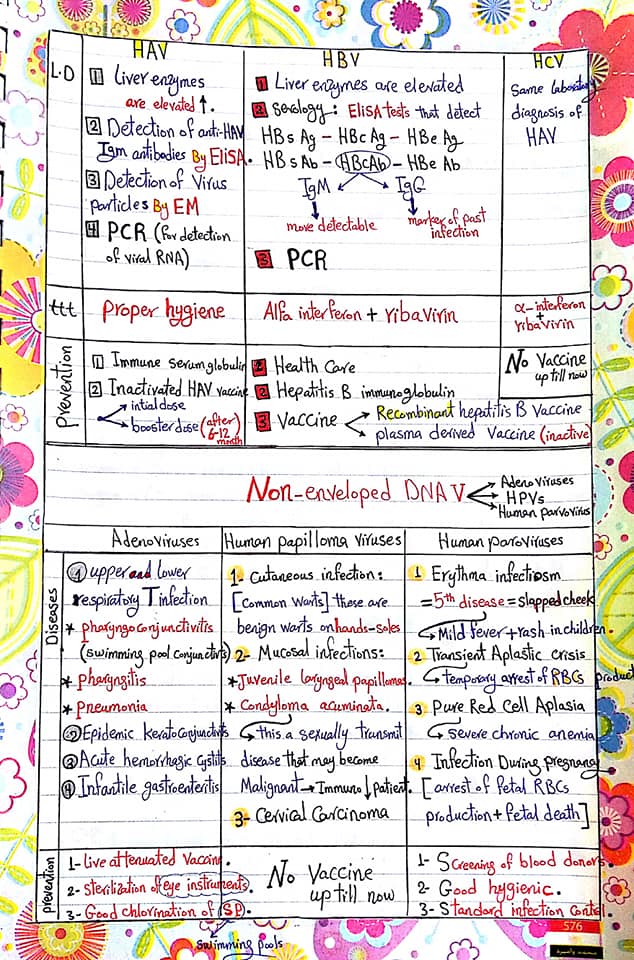 HAV
HBV
HCV
L.D
1 Liver enzymes
are elevated ↑.
2 Detection of anti-HAV
Igm antibodies By EliSA.
3 Detection of Virus
particles By EM
4 PCR (for detection
of viral RNA)
1 Liver enzymes are elevated
2 serology: EliSA tests that detect
HBs Ag - HBc Ag - HBe Ag
HBs Ab - HBcAb - HBe Ab
IgM IgG
more detectable
marker of past
infection
3 PCR
Same laboratory
diagnosis of
HAV
ttt
Proper hygiene
Alfa interferon + ribavirin
α-interferon
+
ribavirin
prevention
1 Immune serumglobulin
2 Inactivated HAV vaccine
intial dose
booster dose (after
6-12
month)
Health Care
2 Hepatitis B immunoglobulin
3 Vaccine
Recombinant hepatitis B Vaccine
plasma derived Vaccine (inactive)
No Vaccine
up till now
Non-enveloped DNA V
Adenoviruses
HPVs
Human parvovirus
Adenoviruses
Human papilloma viruses
Human paroviruses
Diseases
1 upper and lower
respiratory T infection
* pharyngoconjunctivitis
(swimming pool conjunctivis)
* pharyngitis
* pneumonia
2 Epidemic keratoconjunctivits
3 Acute hemorrhagic cystits
4 Infantile gastroenteritis
1- Cutaneous infection:
[Common warts] these are
benign warts on hands-soles
2- Mucosal infections:
*Juvenile laryngeal papillomas.
* Condyloma acuminata.
this a sexually transmit
disease that may become
Malignant → Immuno↓ patient.
3- Cervical Carcinoma
1 Erythma infectiosm
=5th disease = slapped cheek
Mild fever + rash in children.
2 Transient Aplastic crisis
temporary arrest of RBCs product
3 Pure Red Cell Aplasia
severe chronic anemia
4 Infection During pregnancy
[arrest of fetal RBCs
production + fetal death]
prevention
1- live attenuated Vaccine.
2- sterilization of eye instruments.
3- Good chlorination of (SP).
swimming pools
No Vaccine
up till now
1- Screening of blood donors.
2- Good hygienic.
3- Standard infection contol.
576